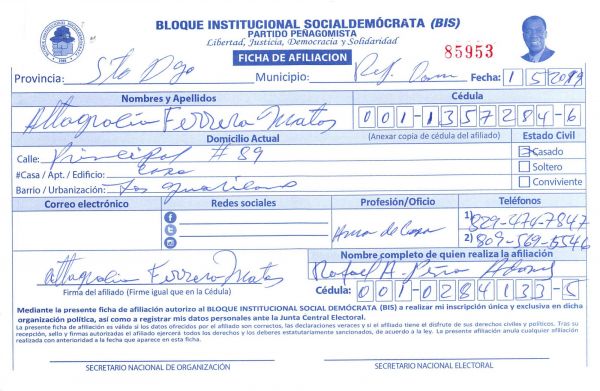 BLOQUE INSTITUCIONAL SOCIALDEMÓCRATA (BIS)
PARTIDO PEÑAGOMISTA
Libertad, Justicia, Democracia y Solidaridad
FICHA DE AFILIACION
85953
Provincia: Sto Dgo Municipio: Rep. Dom Fecha: 1 5 2019
Nombres y Apellidos Cédula
Altagracia Ferrera Matos 001-1357284-6
Domicilio Actual (Anexar copia de cédula del afiliado) Estado Civil
Calle: Principal # 89
#Casa / Apt. / Edificio: Casa
Barrio / Urbanización: Los
Casado
Soltero
Conviviente
Correo electrónico Redes sociales Profesión/Oficio Teléfonos
Ama de Casa
1) 829-474-7847
2) 809-569-1546
Nombre completo de quien realiza la afiliación
Altagracia Ferrera Matos
Rafael A. Peña
Firma del afiliado (Firme igual que en la Cédula)
Cédula: 001-0284133-5
Mediante la presente ficha de afiliación autorizo al BLOQUE INSTITUCIONAL SOCIAL DEMÓCRATA (BIS) a realizar mi inscripción única y exclusiva en dicha
organización política, así como a registrar mis datos personales ante la Junta Central Electoral.
La presente ficha de afiliación es válida si los datos ofrecidos por el afiliado son correctos, las declaraciones veraces y si el afiliado tiene el disfrute de sus derechos civiles y políticos. Tras su
recepción, sello y firmas autorizadas el afiliado ejercerá todos los derechos y los deberes estatutariamente sancionados, de acuerdo a la ley. La presente afiliación anula cualquier afiliación
realizada con anterioridad a la fecha que aparece en esta ficha.
SECRETARIO NACIONAL DE ORGANIZACIÓN SECRETARIO NACIONAL ELECTORAL